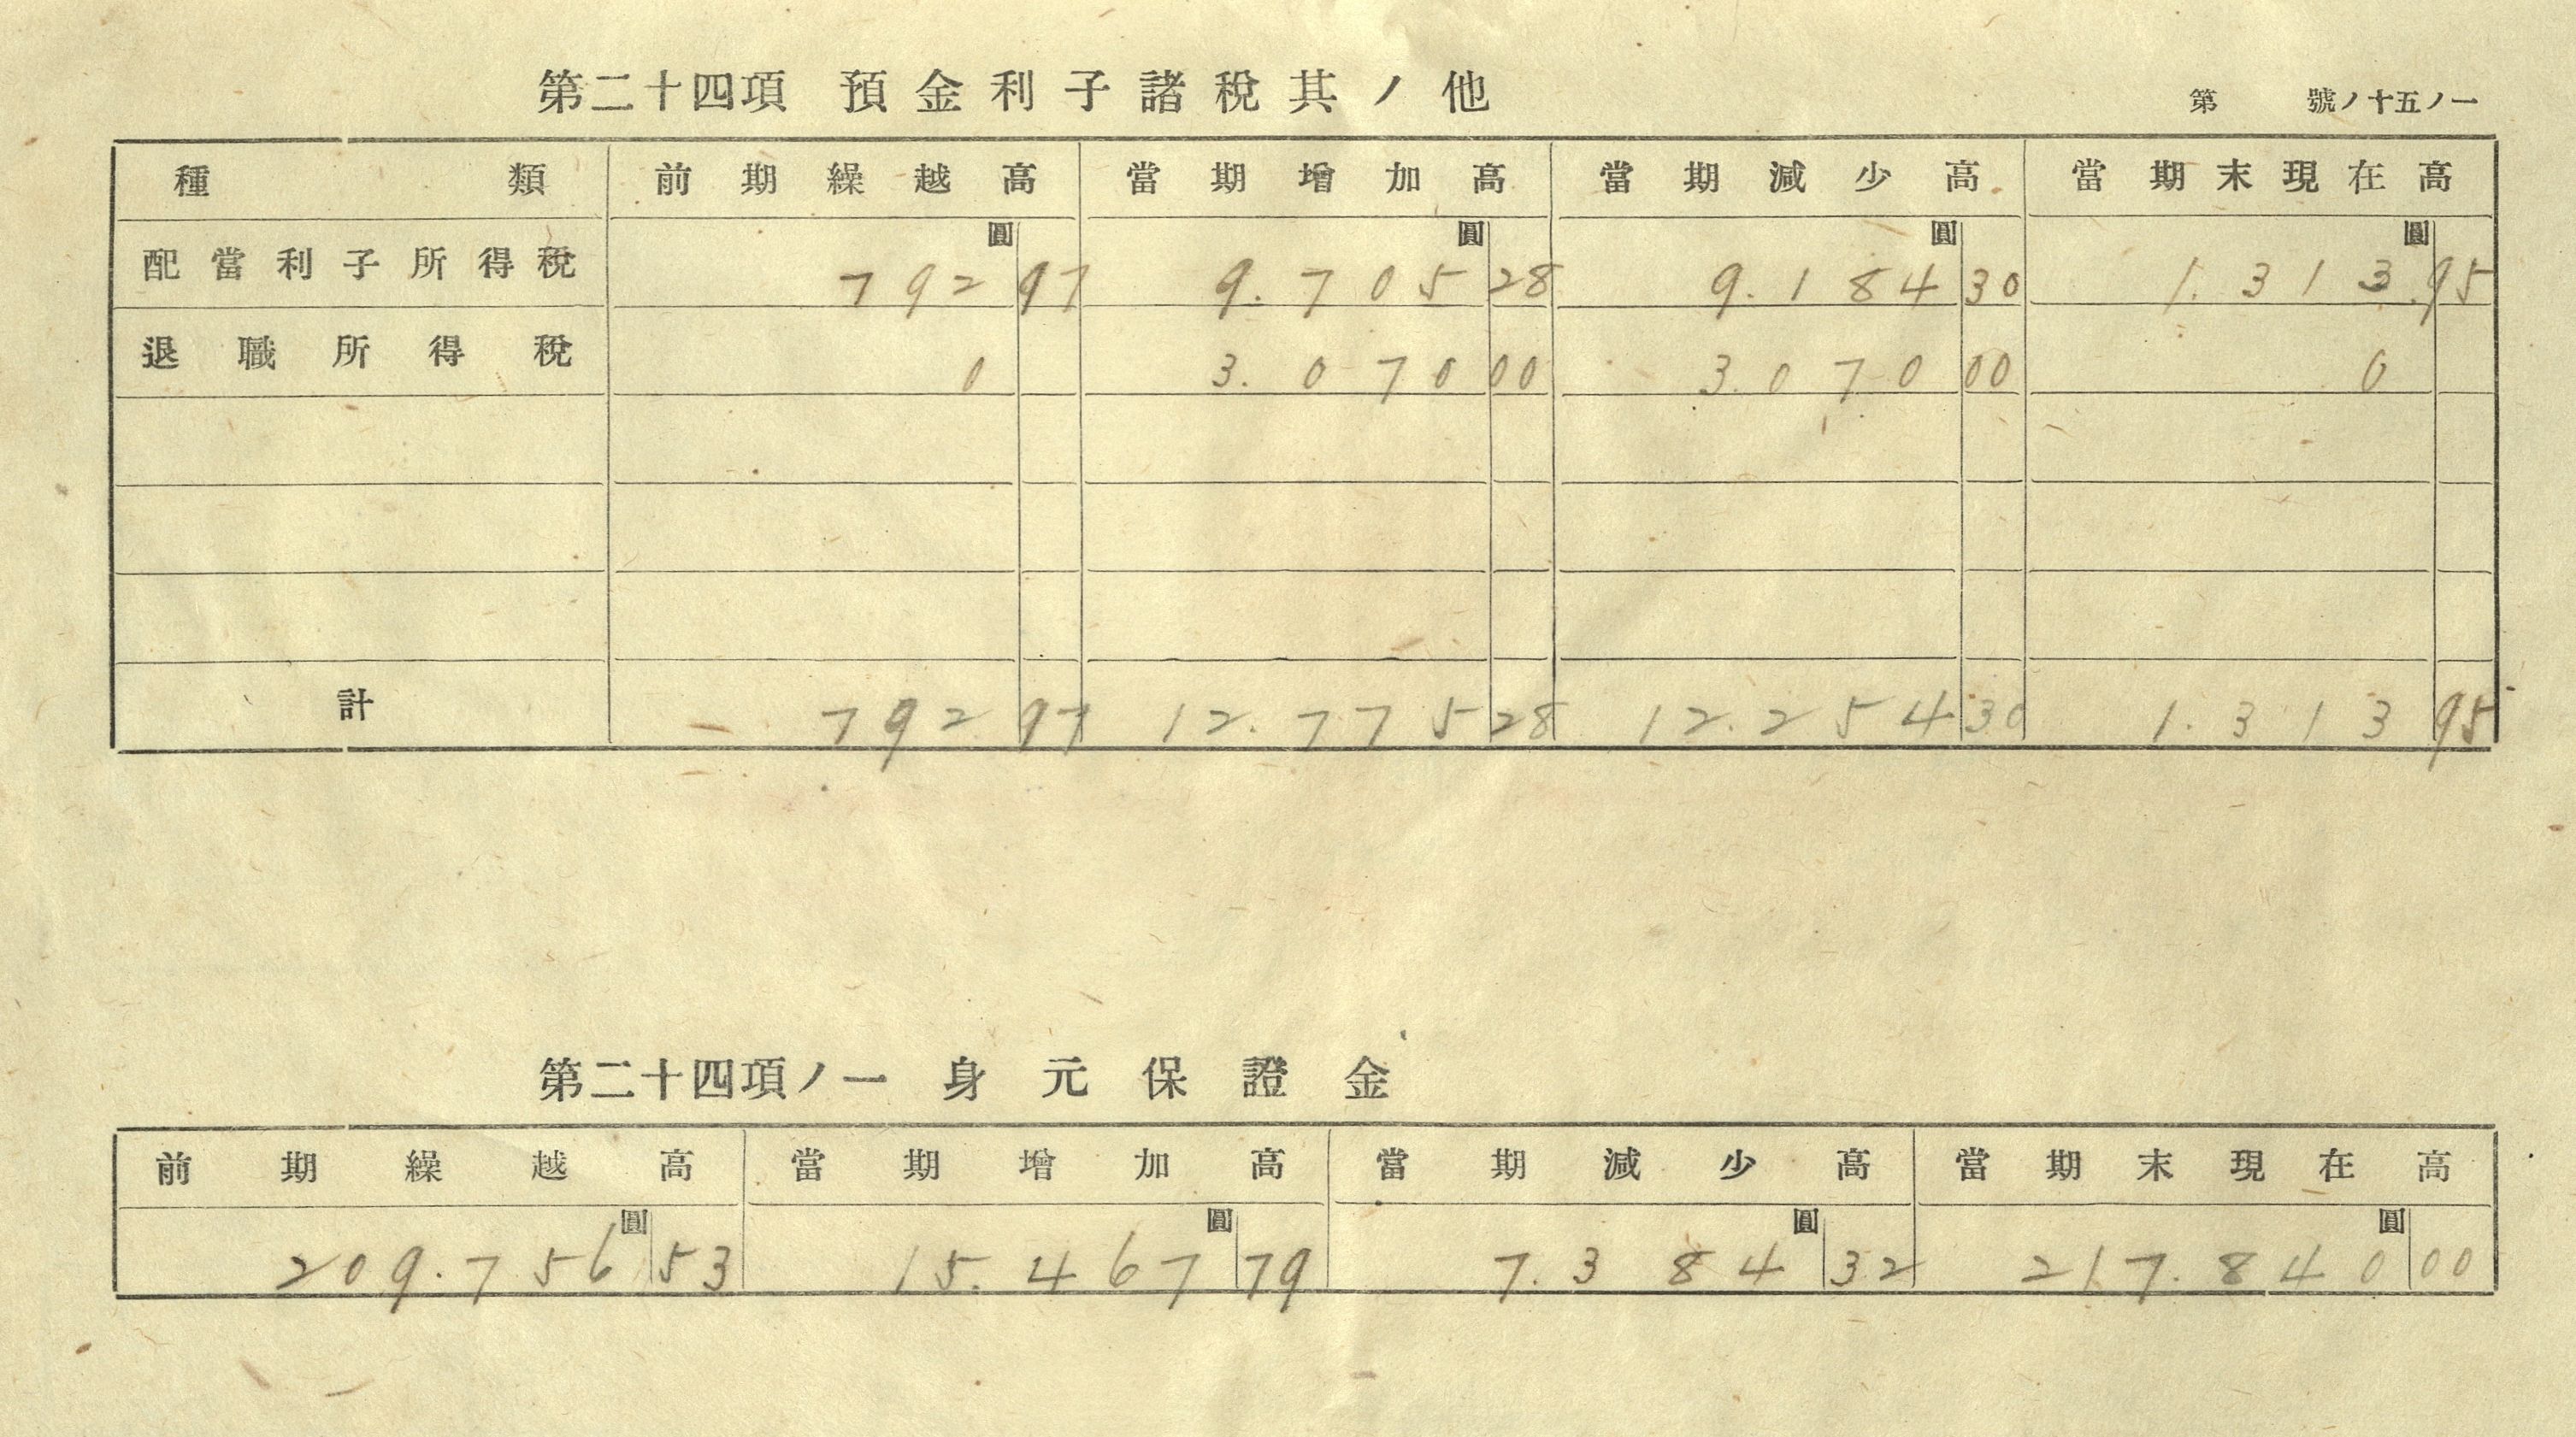 第二十四項 預金利子諸稅其ノ他
第 號ノ十五ノ一
種類 前期繰越高 當期增加高 當期減少高 當期末現在高
圓 圓 圓 圓
配當利子所得稅 792 97 9.705 28 9.184 30 1.313.95
退職所得稅 0 3.070 00 3.070 00 0
計 792 97 12.775 28 12.254 30 1.313 95
第二十四項ノ一 身元保證金
前期繰越高 當期增加高 當期減少高 當期末現在高
圓 圓 圓 圓
209.756 53 15.467 79 7.384 32 217.840 00